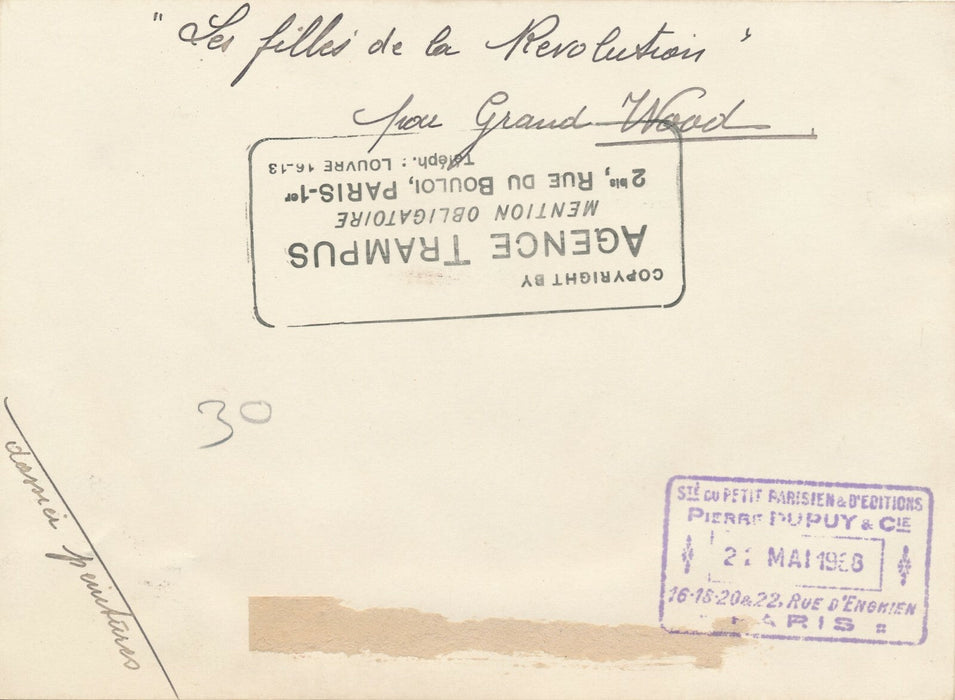 " Les filles de la Revolution "
par Grand Wood
COPYRIGHT BY
AGENCE TRAMPUS
MENTION OBLIGATOIRE
2 bis, RUE DU BOULOI, PARIS-1er
Téléph. : LOUVRE 16-13
30
dossier peintures
STÉ DU PETIT PARISIEN & D'EDITIONS
PIERRE DUPUY & CIE
MAI 1938
16-18-20 & 22, RUE D'ENGHIEN
PARIS